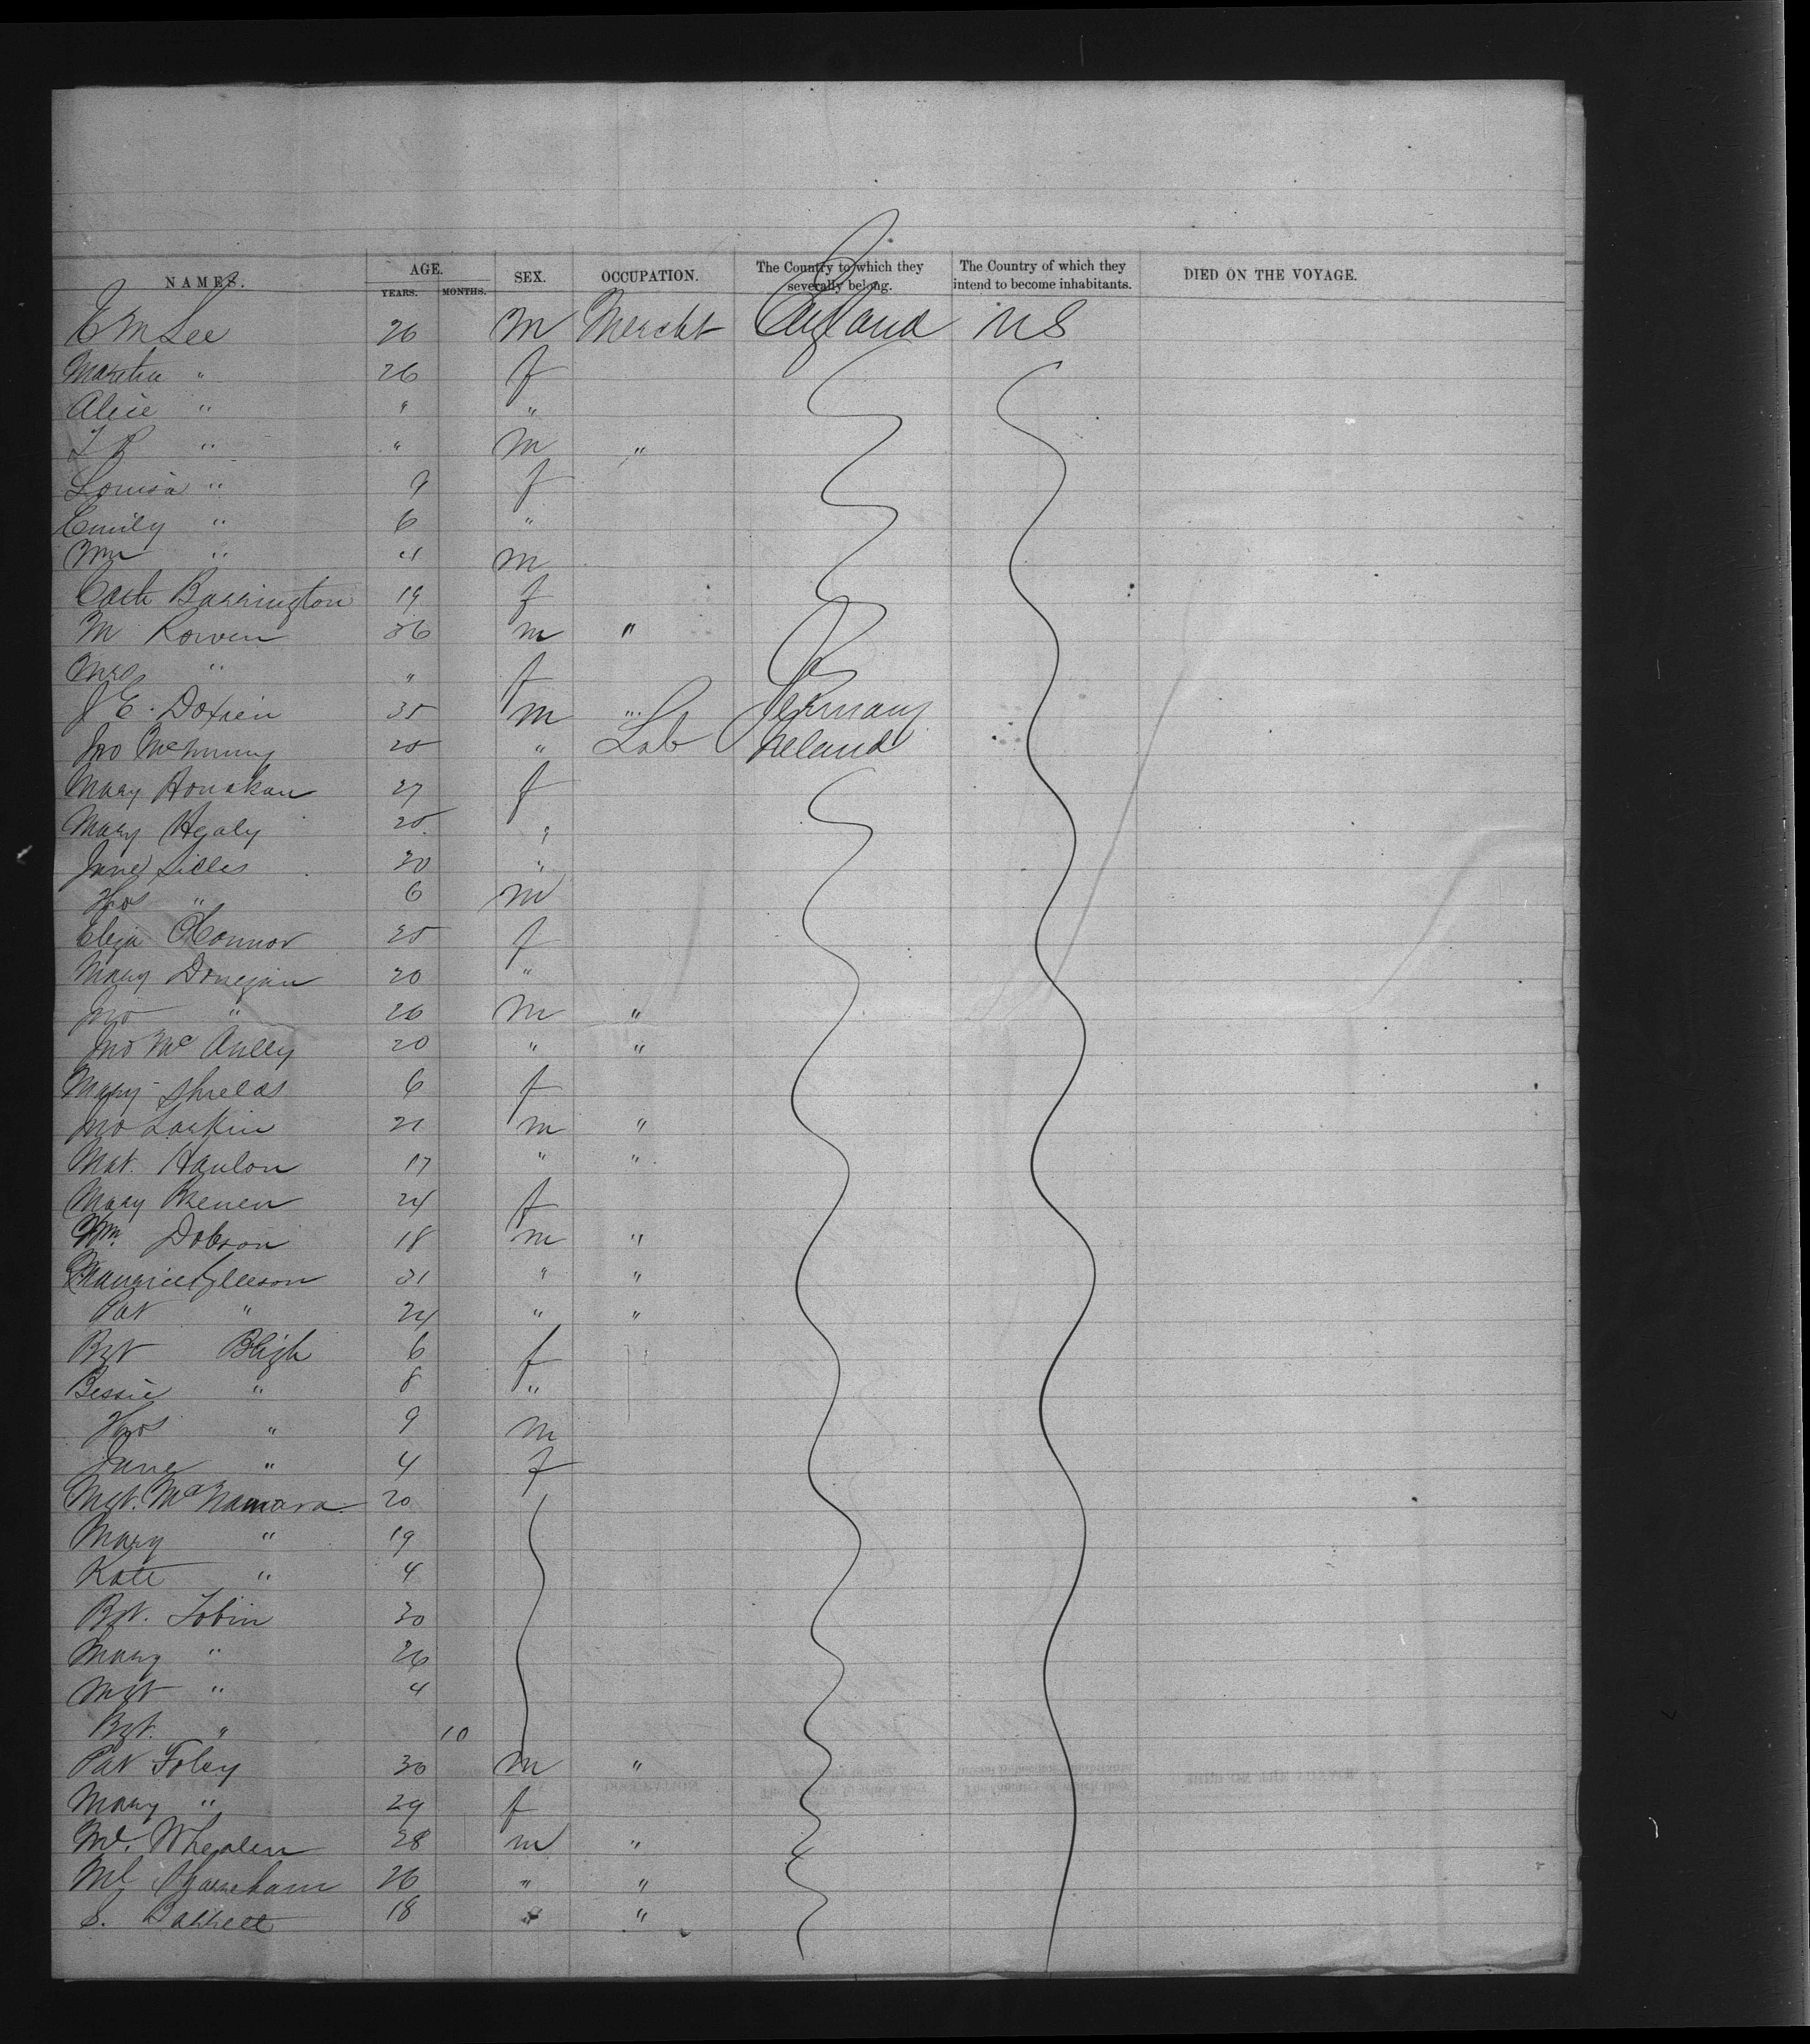 NAMES. AGE. YEARS. MONTHS. SEX. OCCUPATION. The Country to which they severally belong. The Country of which they intend to become inhabitants. DIED ON THE VOYAGE.
E M Lee 26 M Mercht England US
Martha " 26 f
Alice " " "
T R " " M "
Louisa " 9 f
Emily " 6 "
Wm " M
Cath Barrington 19 f
M Rowen 36 m "
Mrs " " f
J E. 35 m " Germany
Jno 25 " Lab Ireland
Mary Honakan 27 f
Mary Healy 25 "
Jane Lilles 30 "
Thos " 6 m
Eliza O'Connor 25 f
Mary Donegan 20 "
Jno " 26 m "
Jno Mc Anlly 20 " "
Mary Shields 6 f
Jno Larkin 21 m "
Mat. Hanlon 17 " "
Mary 24 f
Wm Dobson 18 m "
Maurice Gleeson 31 " "
Pat " 24 " "
Bgt Bligh 6 f
Bessie " 8 "
Thos " 9 m
Jane " 4 f
Mgt. McNamara 20
Mary " 19
Kate " 4
Bgt. Tobin 30
Mary " 26
Mgt " 4
Bgt. " 10
Pat Foley 30 m "
Mary " 29 f
Ml. Whealen 28 m "
Ml 26 " "
S. Barrett 18 " "